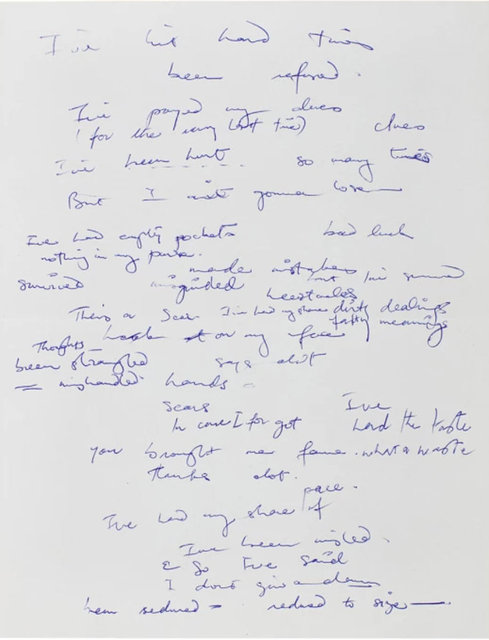 I've hit hard times
been refused.
I've payed my dues
(for the very last time) clues
I've been hurt. so many times
But I aint gonna lose
I've had empty pockets bad luck
nothing in my purse.
made mistakes but I've survived
survived misguided
There's a Scar I've had my share dirty dealings
Thoughts on my face meanings
been strangled says alot
= mishandled hands =
Scars I've
In case I forgot had the taste
you brought me fame. what a waste
thanks alot.
pace.
I've had my share of
I've been misled.
& So I've said
I dont give a damn
been seduced = reduced to size —